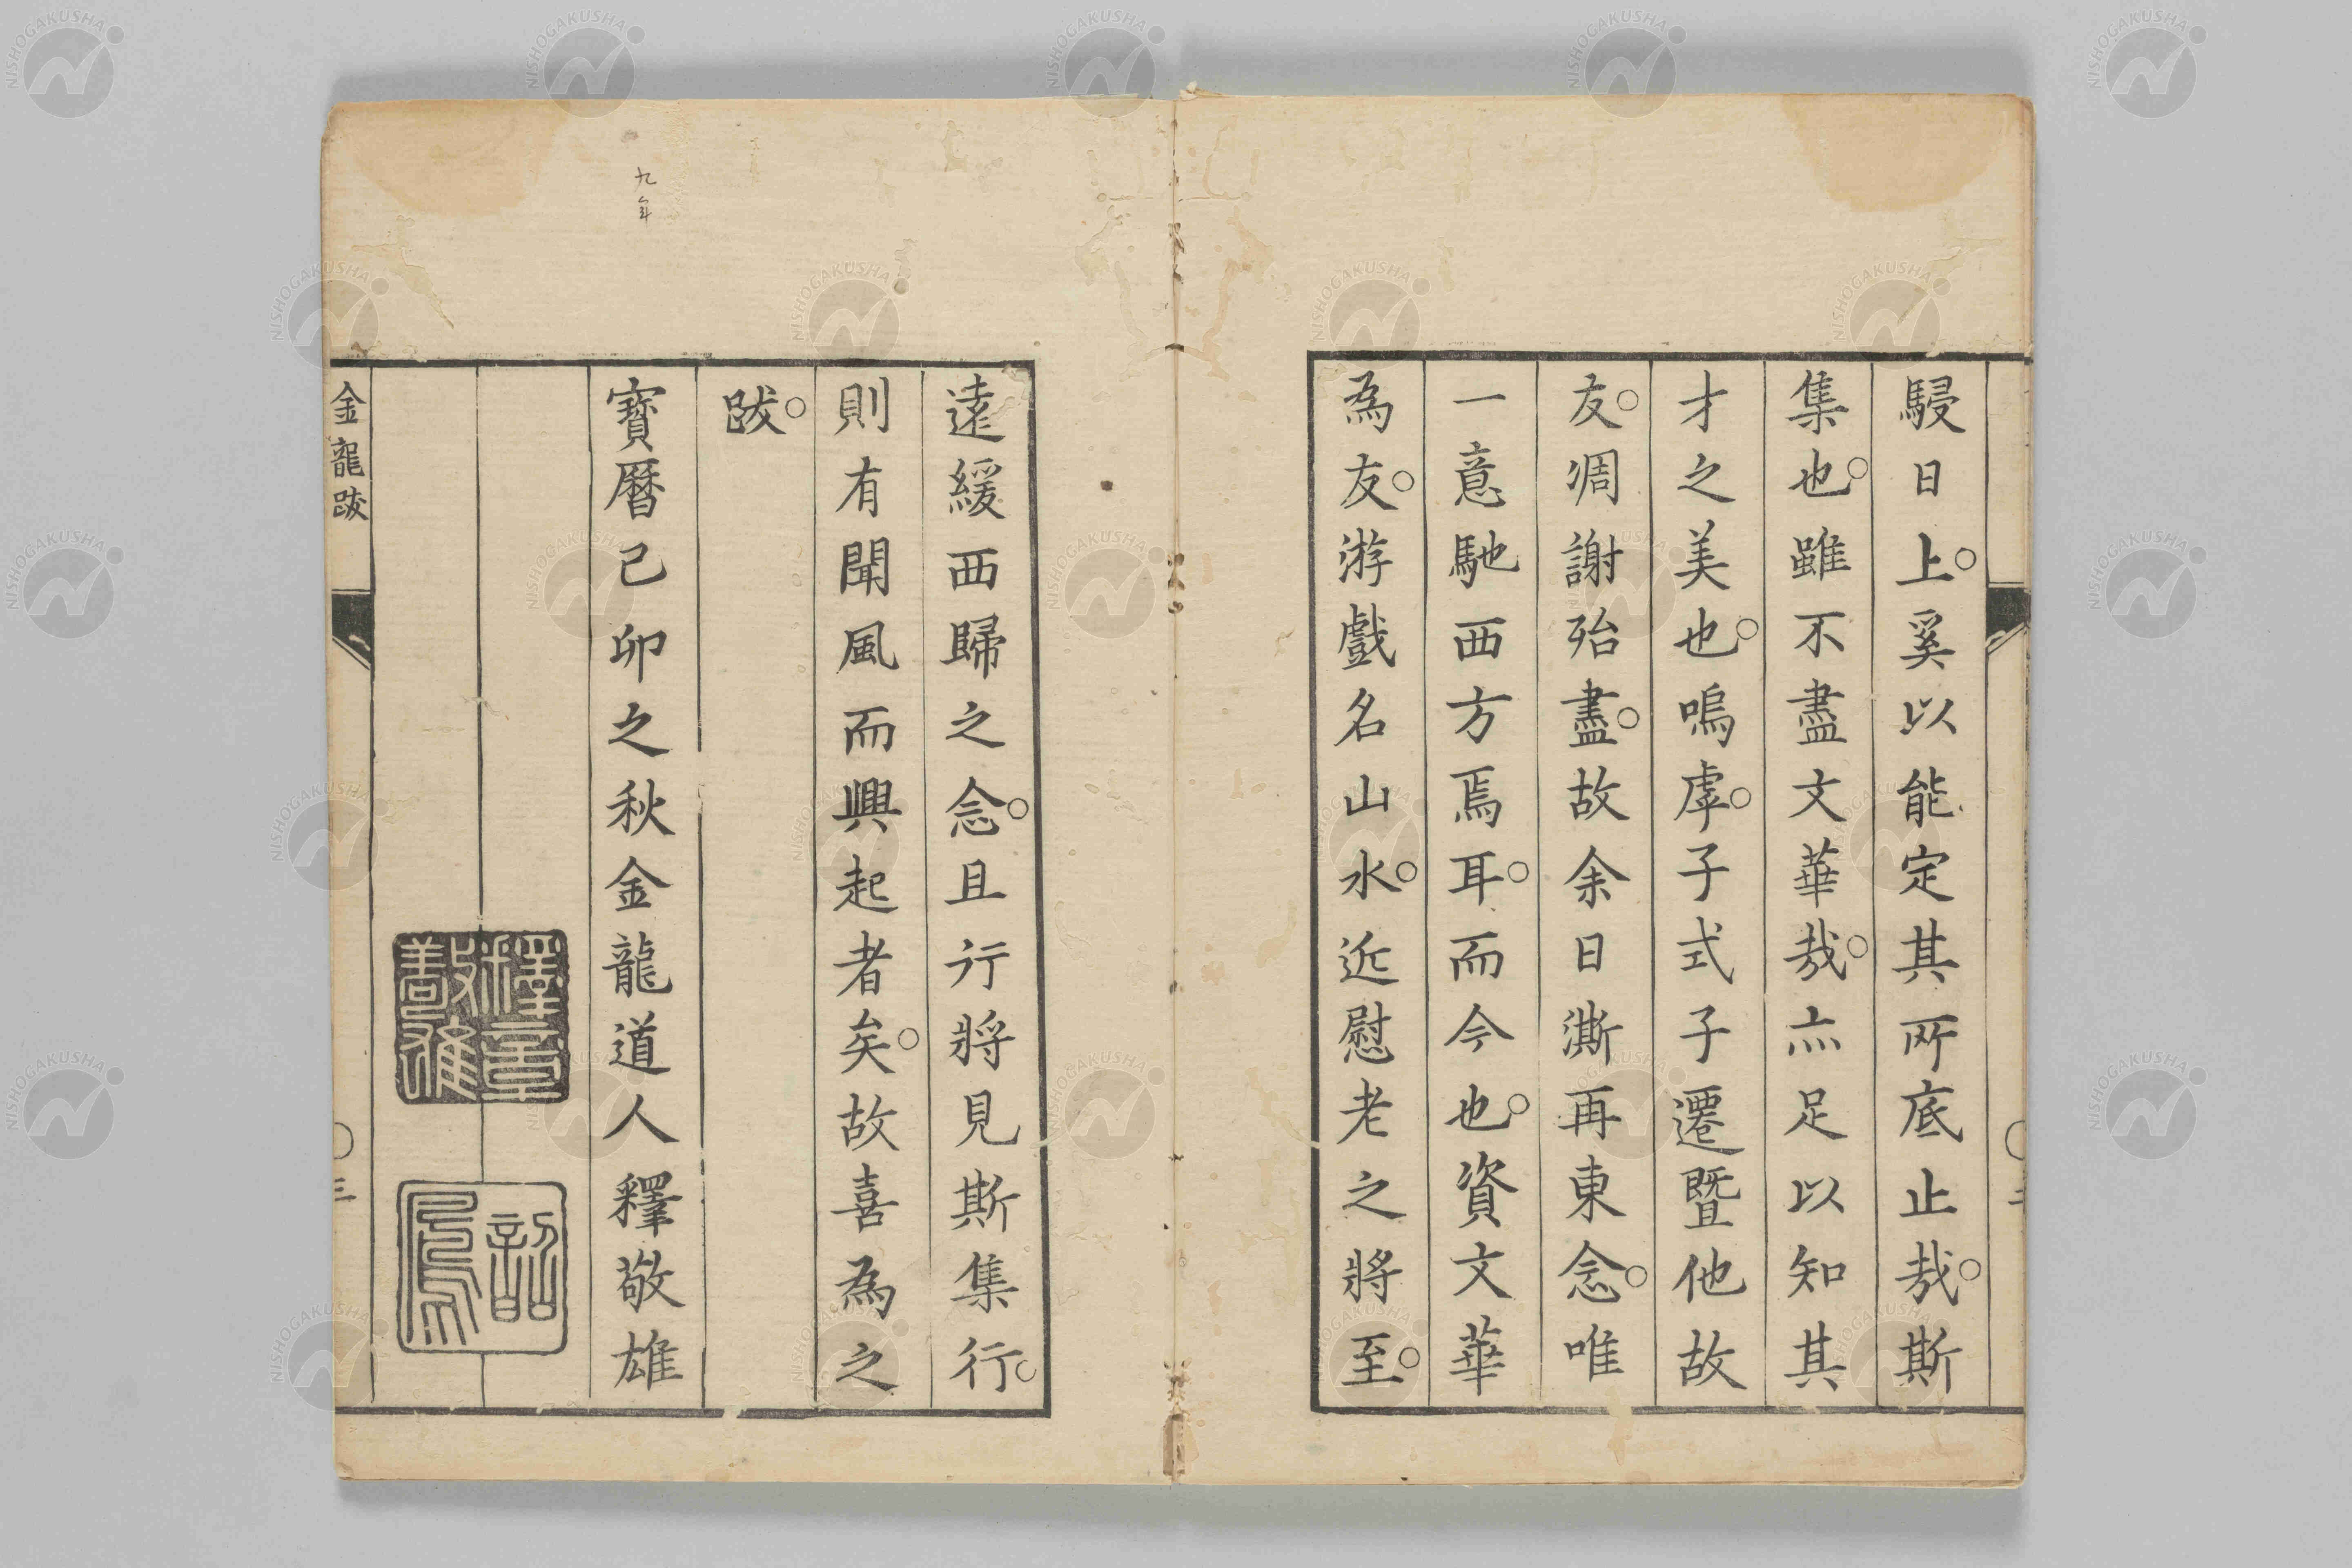 駸日上。奚以能定其所底止哉。斯
集也。雖不盡文華哉。亦足以知其
才之美也。嗚虖。子式子遷暨他故
友。凋謝殆盡。故余日澌再東念。唯
一意馳西方焉耳。而今也。資文華
為友。游戲名山水。近慰老之將至。
遠緩西歸之念。且行將見斯集行。
則有聞風而興起者矣。故喜為之
跋。
寶曆己卯之秋金龍道人釋敬雄
金龍跋
三
九年
NISHOGAKUSHA